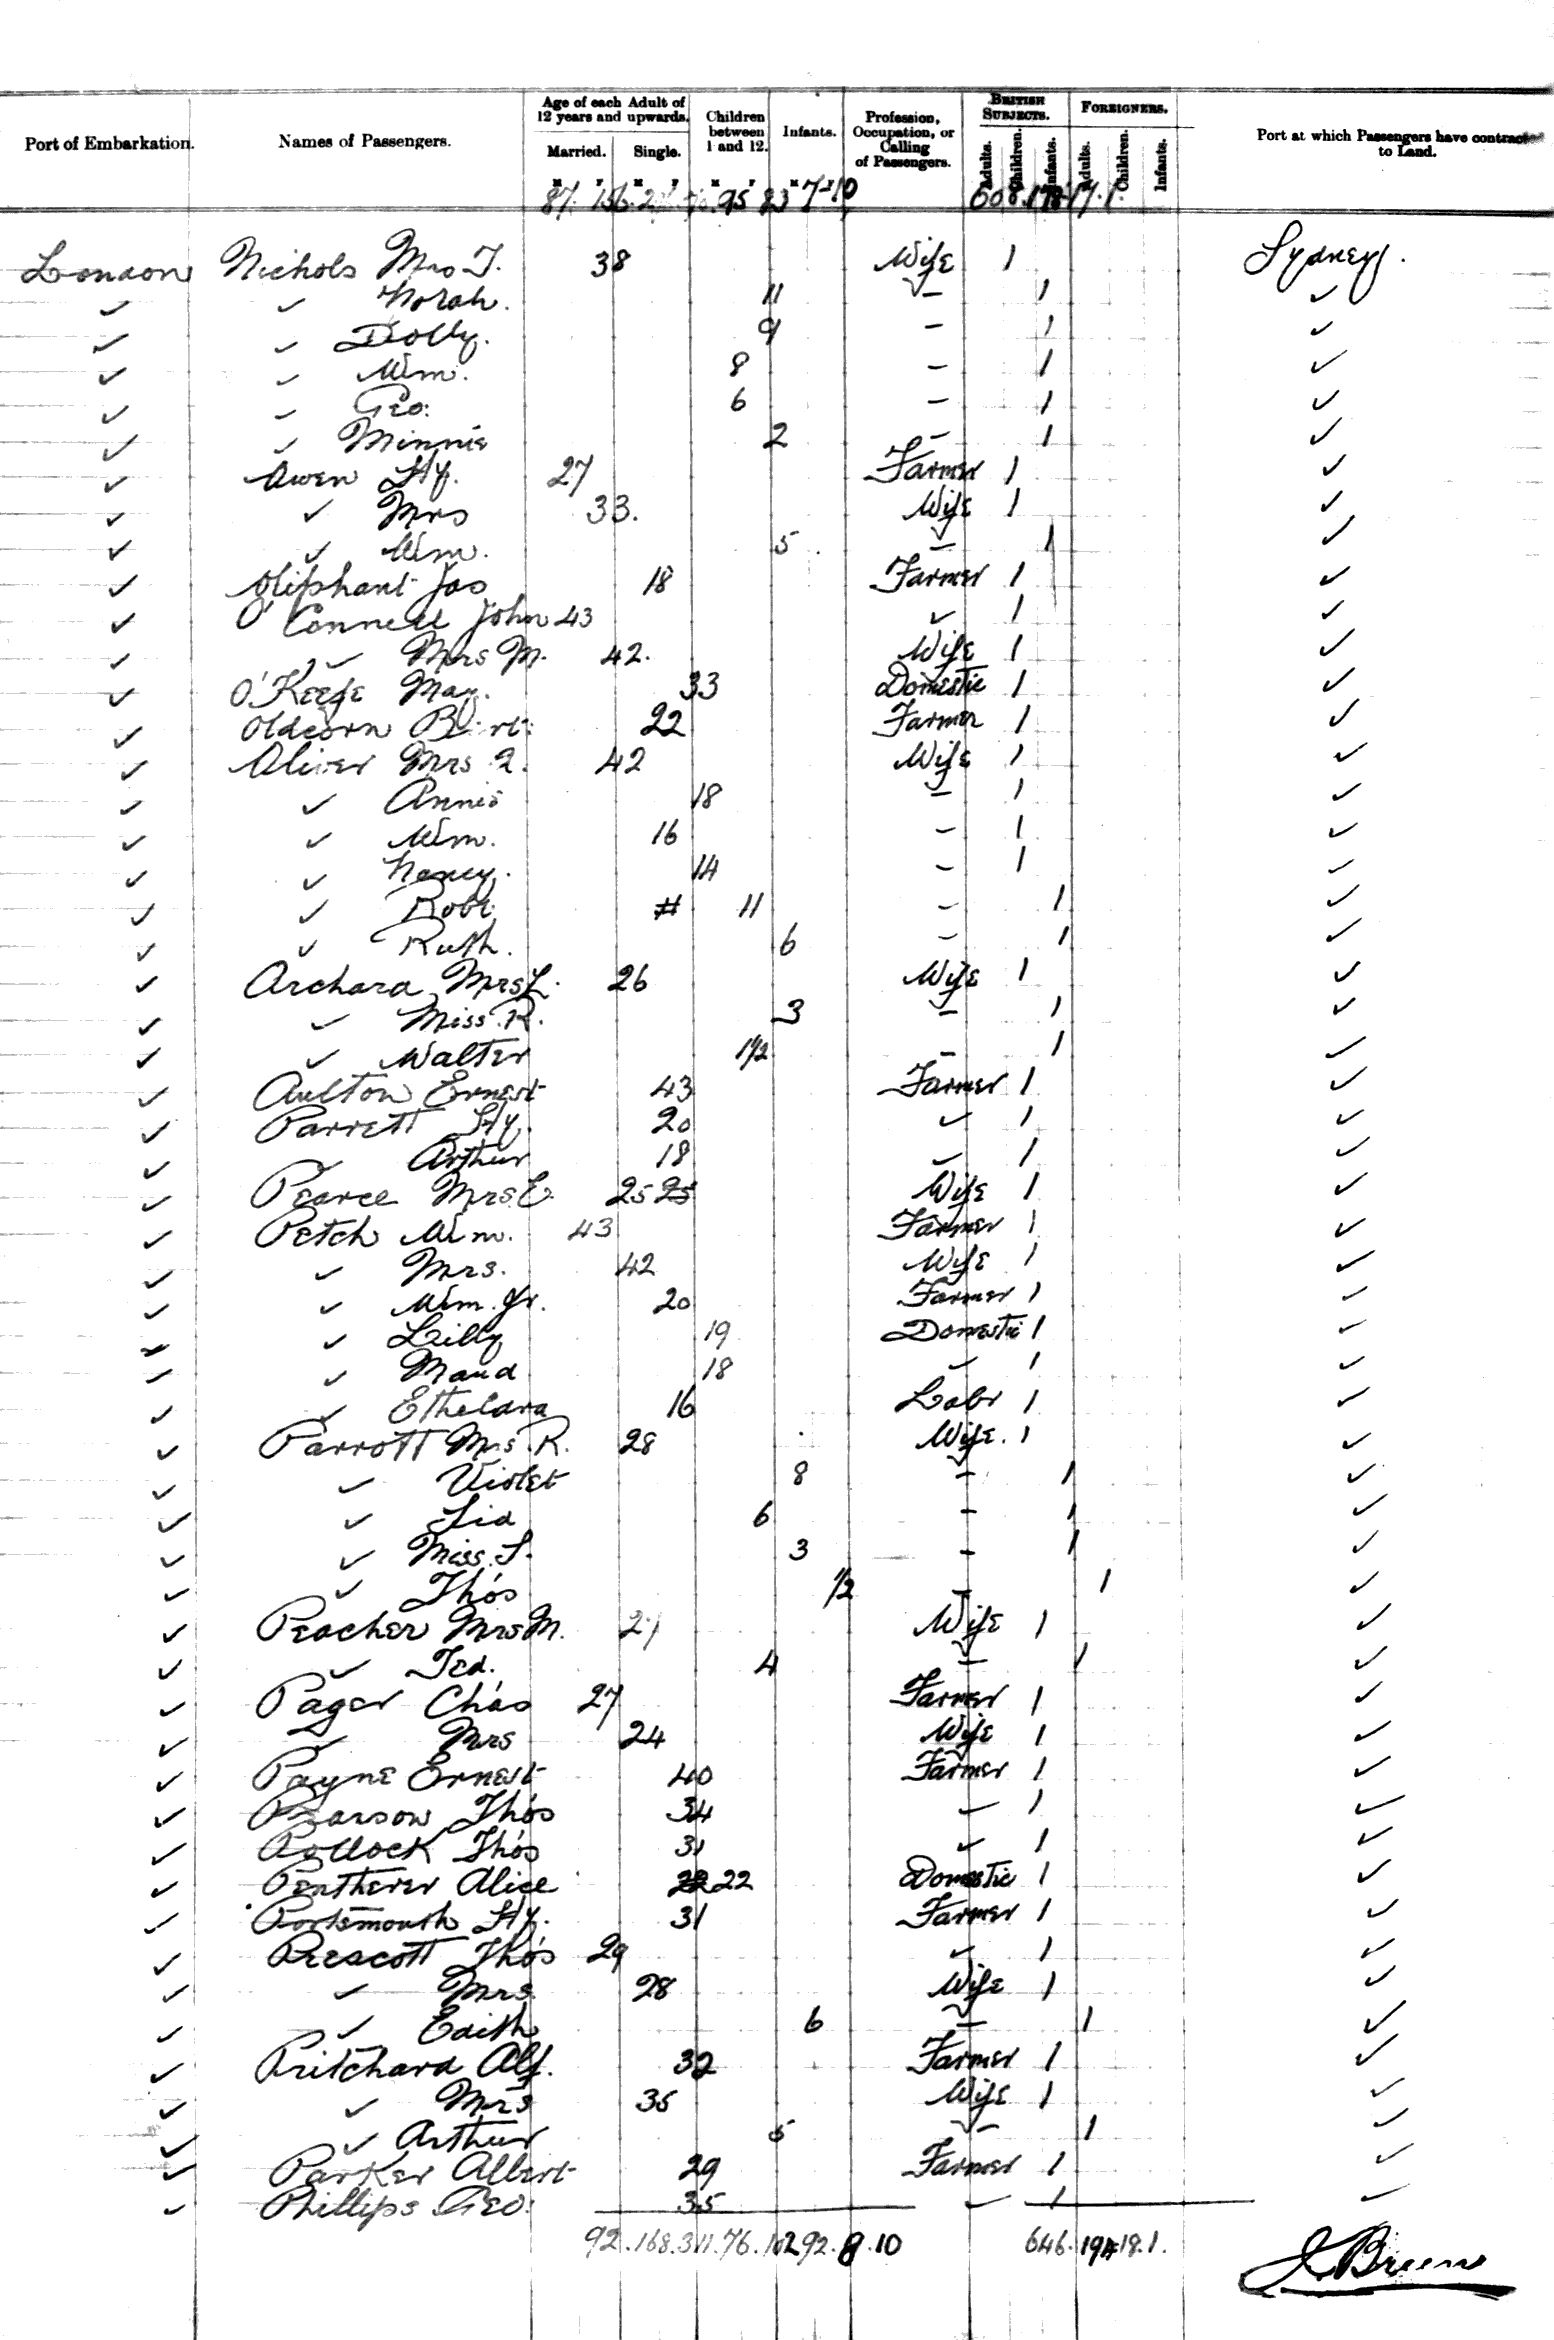 Port of Embarkation. Names of Passengers. Age of each Adult of 12 years and upwards. Married. Single. Children between 1 and 12. Infants. Profession, Occupation, or Calling of Passengers. BRITISH SUBJECTS. Adults. Children. Infants. FOREIGNERS. Adults. Children. Infants. Port at which Passengers have contracted to Land.
M F M F M F M F
87. 156. 95 83 7-10 608. 178. 17. 1.
London Nichols Mrs T. 38 Wife 1 Sydney.
✓ ✓ Norah. 11 - 1 ✓
✓ ✓ Dolly. 9 - 1 ✓
✓ ✓ Wm. 8 - 1 ✓
✓ ✓ Geo: 6 - 1 ✓
✓ ✓ Minnie 2 - 1 ✓
✓ Owen Hy. 27 Farmer 1 ✓
✓ ✓ Mrs 33. Wife 1 ✓
✓ ✓ Wm. 5 - 1 ✓
✓ Oliphant Jas 18 Farmer 1 ✓
✓ O'Connell John 43 ✓ 1 ✓
✓ ✓ Mrs M. 42. Wife 1 ✓
✓ O'Keefe May. 33 Domestic 1 ✓
✓ Oldcorn Bert: 22 Farmer 1 ✓
✓ Oliver Mrs 42 Wife 1 ✓
✓ ✓ Annie 18 - 1 ✓
✓ ✓ Wm. 16 - 1 ✓
✓ ✓ Nancy. 14 - 1 ✓
✓ ✓ Robt 11 - 1 ✓
✓ ✓ Ruth. 6 - 1 ✓
✓ Archard Mrs L. 26 Wife 1 ✓
✓ ✓ Miss R. 3 - 1 ✓
✓ ✓ Walter 1½ - 1 ✓
✓ Aulton Ernest 43 Farmer 1 ✓
✓ Parrett Hy. 20 ✓ 1 ✓
✓ ✓ Arthur 18 ✓ 1 ✓
✓ Pearce Mrs E. 25 25 Wife 1 ✓
✓ Petch Wm. 43 Farmer 1 ✓
✓ ✓ Mrs. 42 Wife 1 ✓
✓ ✓ Wm. Jr. 20 Farmer 1 ✓
✓ ✓ Lilly 19 Domestic 1 ✓
✓ ✓ Maud 18 ✓ 1 ✓
✓ ✓ Ethelard 16 Labr 1 ✓
✓ Parrott Mrs R. 28 Wife. 1 ✓
✓ ✓ Violet 8 - 1 ✓
✓ ✓ Sid 6 - 1 ✓
✓ ✓ Miss S. 3 - 1 ✓
✓ ✓ Thos ½ - 1 ✓
✓ Peacher Mrs M. 21 Wife 1 ✓
✓ ✓ Ted. 4 - 1 ✓
✓ Pager Chas 27 Farmer 1 ✓
✓ ✓ Mrs 24 Wife 1 ✓
✓ Payne Ernest 40 Farmer 1 ✓
✓ Pearson Thos 34 ✓ 1 ✓
✓ Pollock Thos 31 ✓ 1 ✓
✓ Pentherer Alice 22 22 Domestic 1 ✓
✓ Portsmouth Hy. 31 Farmer 1 ✓
✓ Prescott Thos 29 ✓ 1 ✓
✓ ✓ Mrs 28 Wife 1 ✓
✓ ✓ Edith 6 - 1 ✓
✓ Pritchard Alf. 32 Farmer 1 ✓
✓ ✓ Mrs 35 Wife 1 ✓
✓ ✓ Arthur 5 - 1 ✓
✓ Parker Albert 29 Farmer 1 ✓
✓ Phillips Geo: 35 ✓ 1 ✓
92. 168. 311. 76. 102 92. 8. 10 646. 194 18. 1.